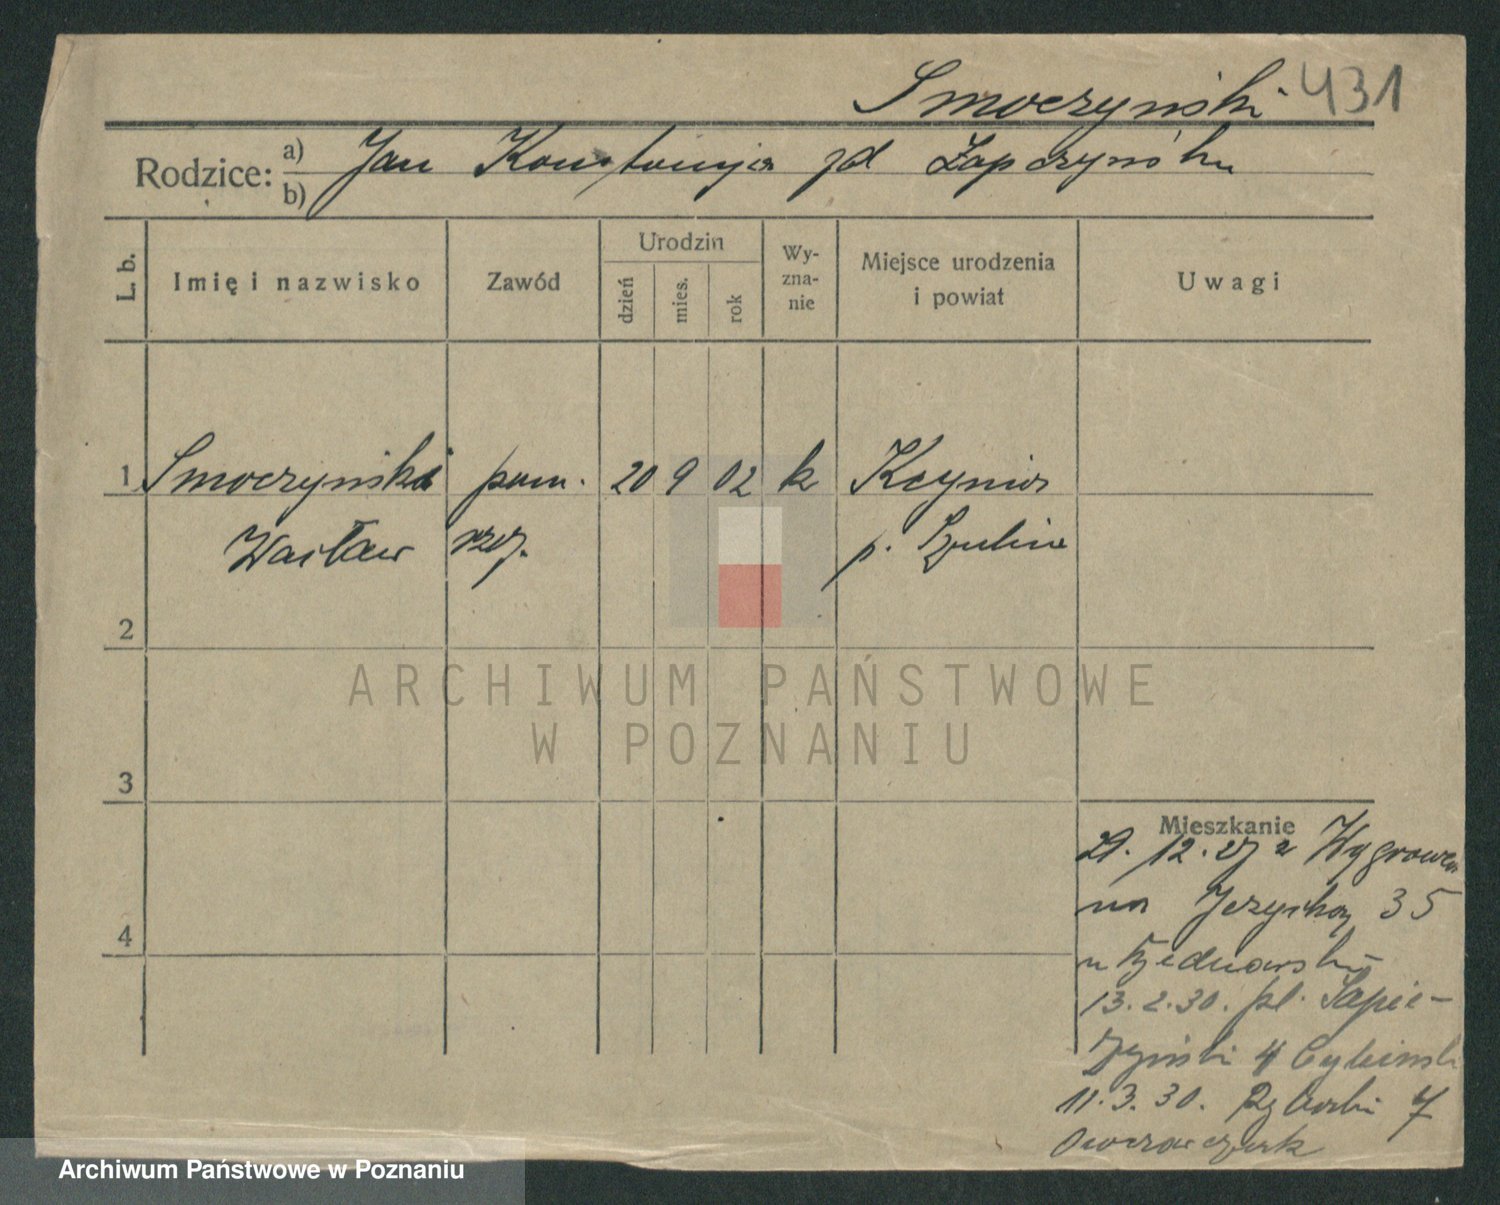 Smoczyński 431
Rodzice: a) b) Jan Konstancja zd Łapczyńska
L. b.
Imię i nazwisko
Zawód
Urodzin
dzień
mies.
rok
Wy-
zna-
nie
Miejsce urodzenia
i powiat
Uwagi
1 Smoczyński pom. 20 9 02 k Kcynia
Wacław rzeź. p. Szubin
2
3
4
Mieszkanie
21. 12. 27 z Wągrowca
na Jeżycka 35
u Bednarski
13. 2. 30. pl. Sapie-
żyński 4 Cybiński
11. 3. 30. Rybaki 7
ARCHIWUM PAŃSTWOWE
W POZNANIU
Archiwum Państwowe w Poznaniu